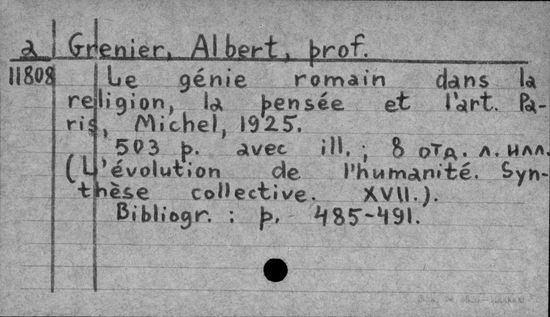 2 Grenier, Albert, prof.
11808 Le génie romain dans la
religion, la pensée et l'art. Pa-
ris, Michel, 1925.
503 p. avec ill. ; 8 отд. л. илл.
(L'évolution de l'humanité. Syn-
thèse collective. XVII.).
Bibliogr. : p. 485-491.